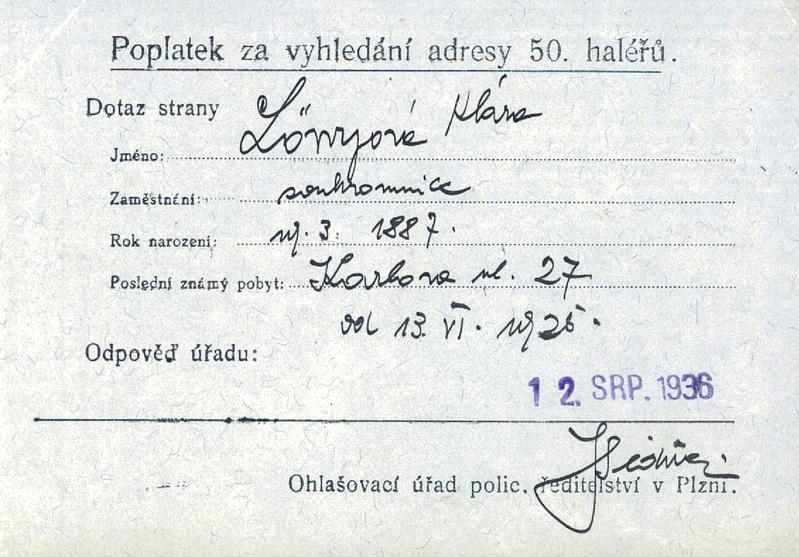 Poplatek za vyhledání adresy 50. haléřů.
Dotaz strany
Jméno: Löwyová Klára
Zaměstnání: soukromnice
Rok narození: 3. 1887.
Poslední známý pobyt: Karlova ul. 27
od 13. VI. 1925.
Odpověď úřadu:
12. SRP. 1936
Ohlašovací úřad polic. ředitelství v Plzni.